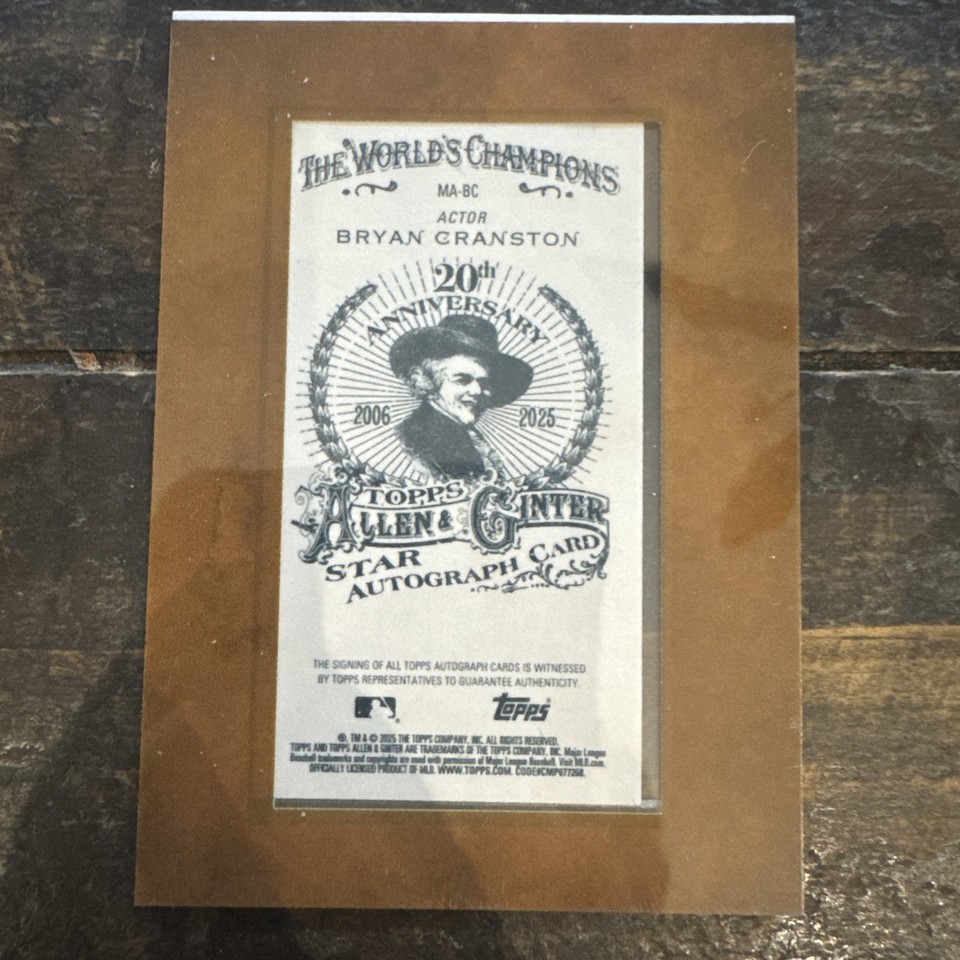 THE WORLD'S CHAMPIONS
MA-BC
ACTOR
BRYAN CRANSTON
20th
ANNIVERSARY
2006 2025
TOPPS
ALLEN & GINTER
STAR
AUTOGRAPH CARD
THE SIGNING OF ALL TOPPS AUTOGRAPH CARDS IS WITNESSED
BY TOPPS REPRESENTATIVES TO GUARANTEE AUTHENTICITY.
topps
®, TM & © 2025 THE TOPPS COMPANY, INC. ALL RIGHTS RESERVED.
TOPPS AND TOPPS ALLEN & GINTER ARE TRADEMARKS OF THE TOPPS COMPANY, INC. Major League
Baseball trademarks and copyrights are used with permission of Major League Baseball. Visit MLB.com.
OFFICIALLY LICENSED PRODUCT OF MLB. WWW.TOPPS.COM. CODE#CMP077268.